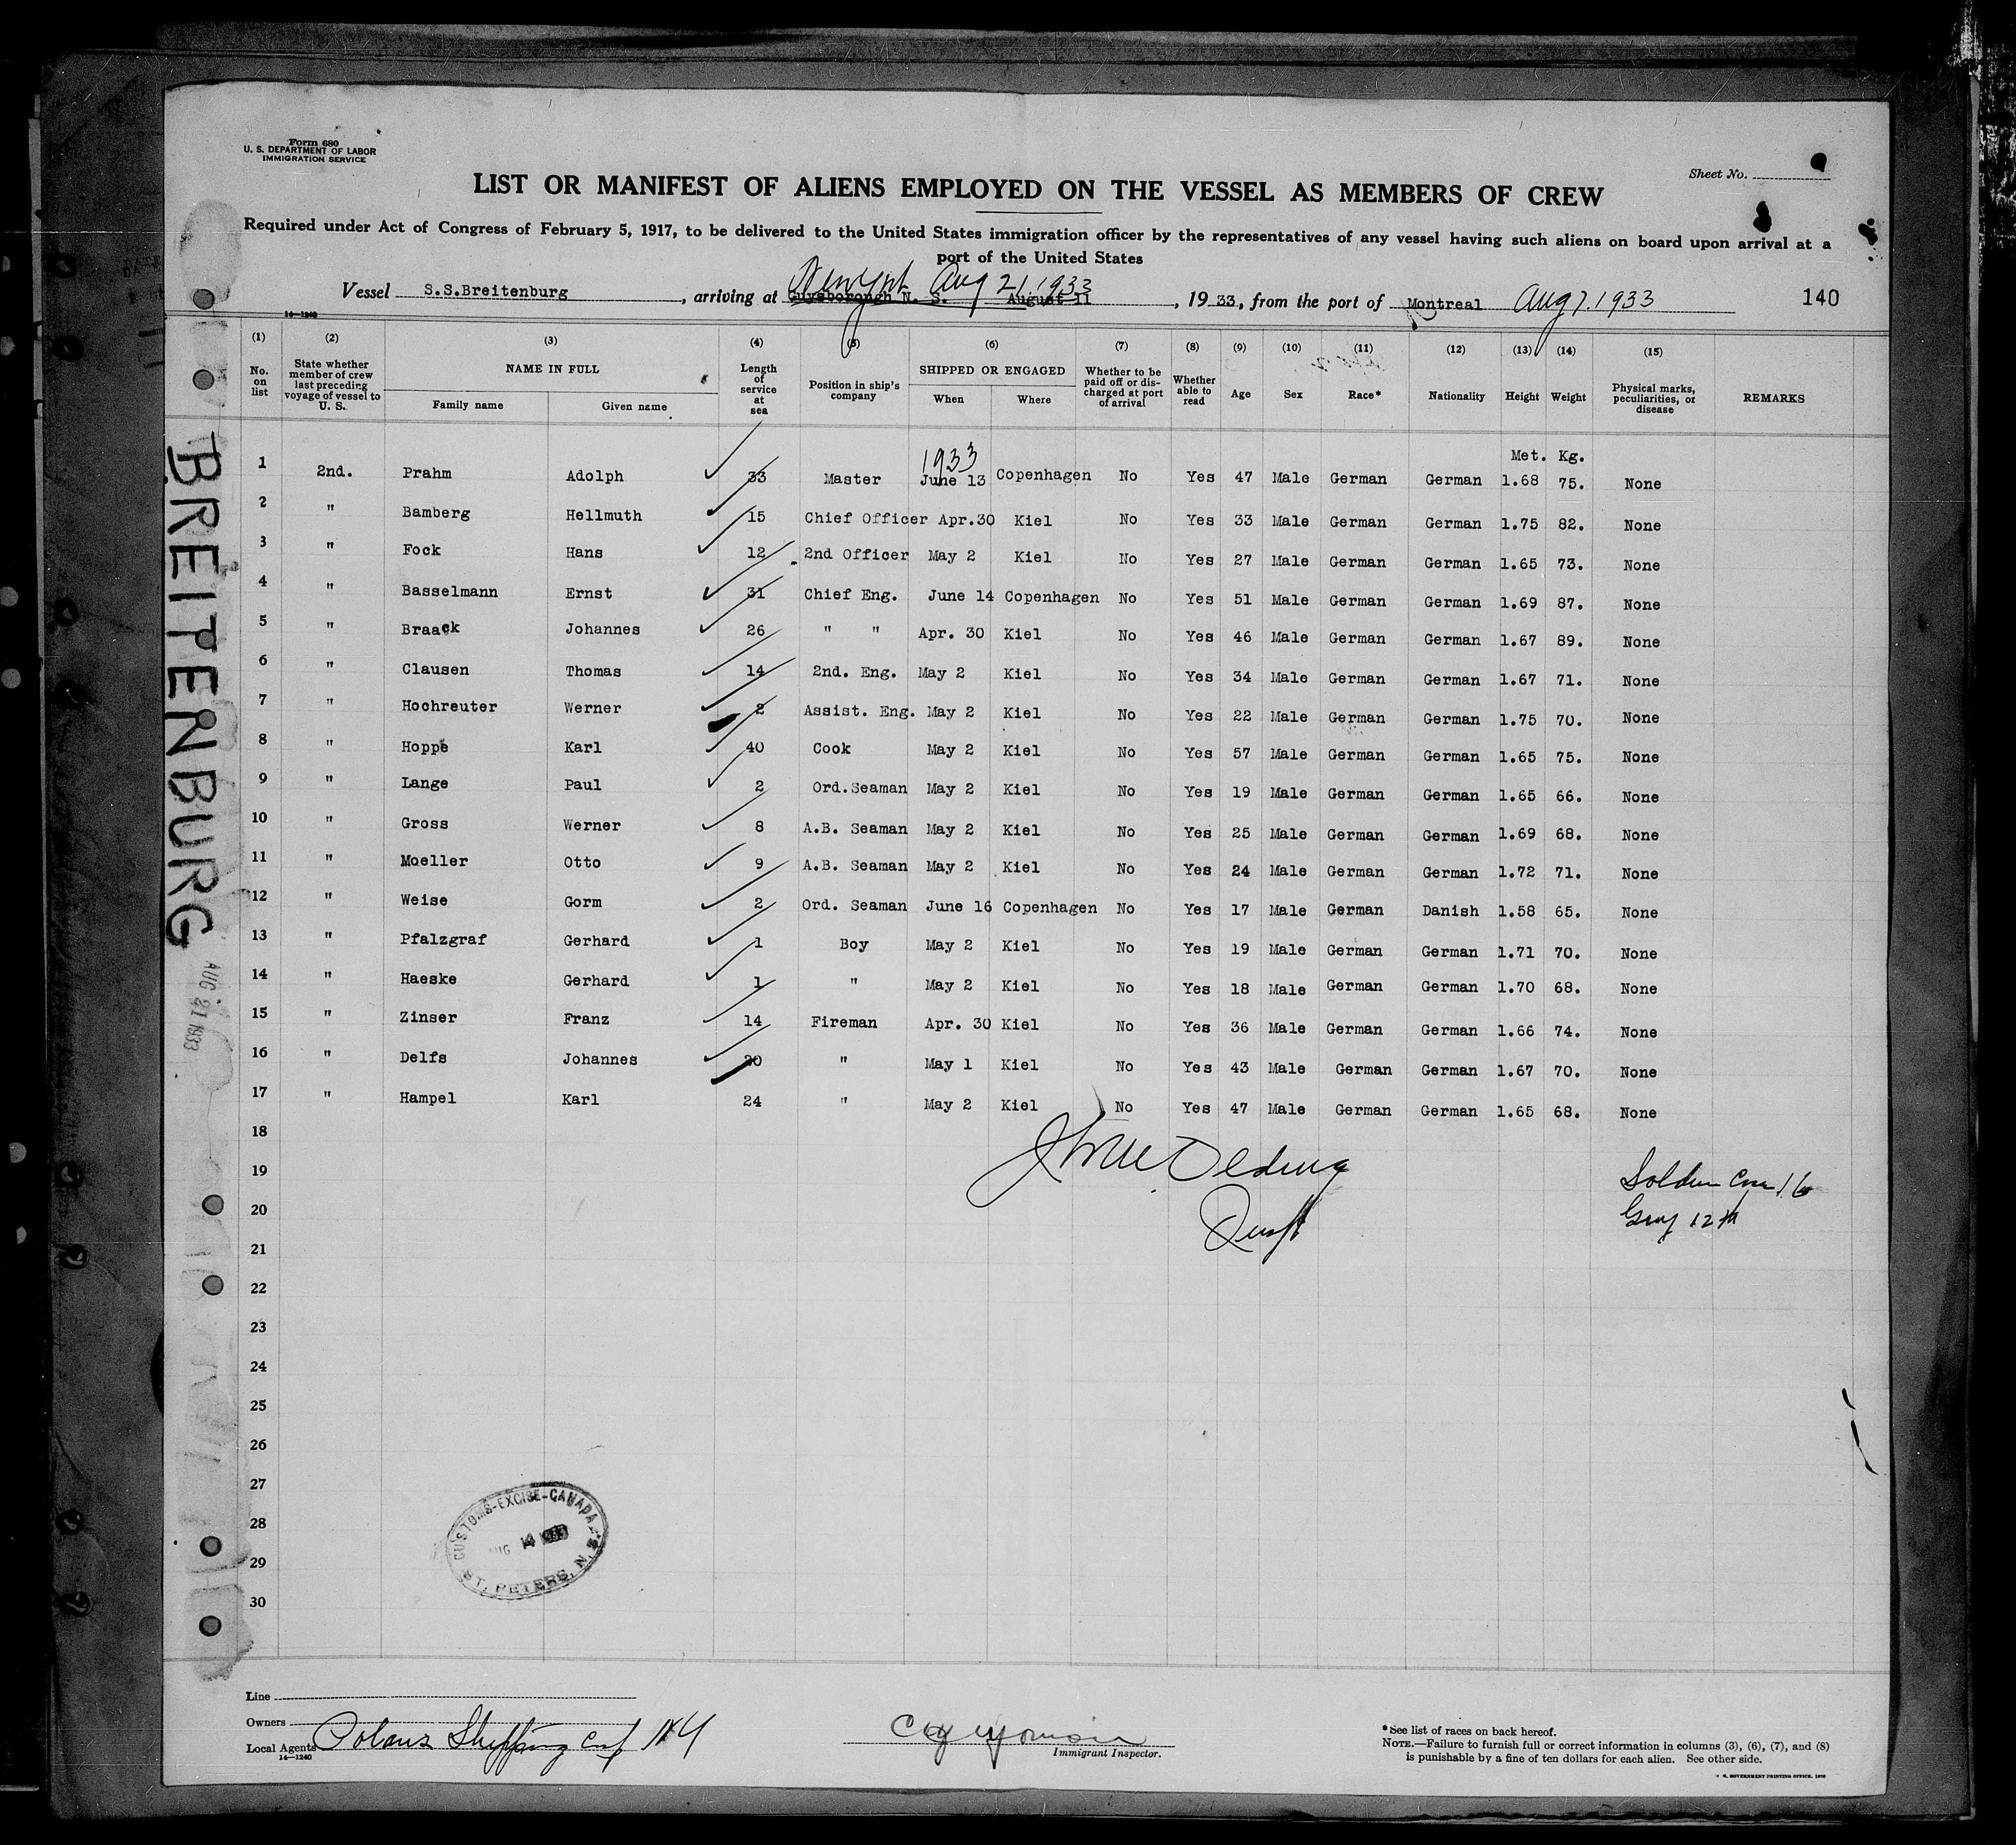 Form 680
U. S. DEPARTMENT OF LABOR
IMMIGRATION SERVICE
Sheet No.
LIST OR MANIFEST OF ALIENS EMPLOYED ON THE VESSEL AS MEMBERS OF CREW
Required under Act of Congress of February 5, 1917, to be delivered to the United States immigration officer by the representatives of any vessel having such aliens on board upon arrival at a
port of the United States
New York Aug 21, 1933
Vessel S.S.Breitenburg, arriving at Guysborough N. S. August 11, 1933, from the port of Montreal Aug 7. 1933 140
14—1240
(1) (2) (3) (4) (5) (6) (7) (8) (9) (10) (11) (12) (13) (14) (15)
No. on list State whether member of crew last preceding voyage of vessel to U. S. NAME IN FULL Family name Given name Length of service at sea Position in ship's company SHIPPED OR ENGAGED When Where Whether to be paid off or discharged at port of arrival Whether able to read Age Sex Race* Nationality Height Weight Physical marks, peculiarities, or disease REMARKS
1933 Met. Kg.
1 2nd. Prahm Adolph 33 Master June 13 Copenhagen No Yes 47 Male German German 1.68 75. None
2 " Bamberg Hellmuth 15 Chief Officer Apr.30 Kiel No Yes 33 Male German German 1.75 82. None
3 " Fock Hans 12 2nd Officer May 2 Kiel No Yes 27 Male German German 1.65 73. None
4 " Basselmann Ernst 31 Chief Eng. June 14 Copenhagen No Yes 51 Male German German 1.69 87. None
5 " Braack Johannes 26 " " Apr. 30 Kiel No Yes 46 Male German German 1.67 89. None
6 " Clausen Thomas 14 2nd. Eng. May 2 Kiel No Yes 34 Male German German 1.67 71. None
7 " Hochreuter Werner 2 Assist. Eng. May 2 Kiel No Yes 22 Male German German 1.75 70. None
8 " Hoppe Karl 40 Cook May 2 Kiel No Yes 57 Male German German 1.65 75. None
9 " Lange Paul 2 Ord.Seaman May 2 Kiel No Yes 19 Male German German 1.65 66. None
10 " Gross Werner 8 A.B. Seaman May 2 Kiel No Yes 25 Male German German 1.69 68. None
11 " Moeller Otto 9 A.B. Seaman May 2 Kiel No Yes 24 Male German German 1.72 71. None
12 " Weise Gorm 2 Ord. Seaman June 16 Copenhagen No Yes 17 Male German Danish 1.58 65. None
13 " Pfalzgraf Gerhard 1 Boy May 2 Kiel No Yes 19 Male German German 1.71 70. None
14 " Haeske Gerhard 1 " May 2 Kiel No Yes 18 Male German German 1.70 68. None
15 " Zinser Franz 14 Fireman Apr. 30 Kiel No Yes 36 Male German German 1.66 74. None
16 " Delfs Johannes 20 " May 1 Kiel No Yes 43 Male German German 1.67 70. None
17 " Hampel Karl 24 " May 2 Kiel No Yes 47 Male German German 1.65 68. None
18
19
20
12th
21
22
23
24
25
26
27
28
29
30
BREITENBURG
AUG 21 1933
CUSTOMS-EXCISE-CANADA
AUG 14
ST. PETERS, N.S.
Line
Owners
Local Agents Shipping
14—1240
Immigrant Inspector.
*See list of races on back hereof.
NOTE.—Failure to furnish full or correct information in columns (3), (6), (7), and (8)
is punishable by a fine of ten dollars for each alien. See other side.
U. S. GOVERNMENT PRINTING OFFICE